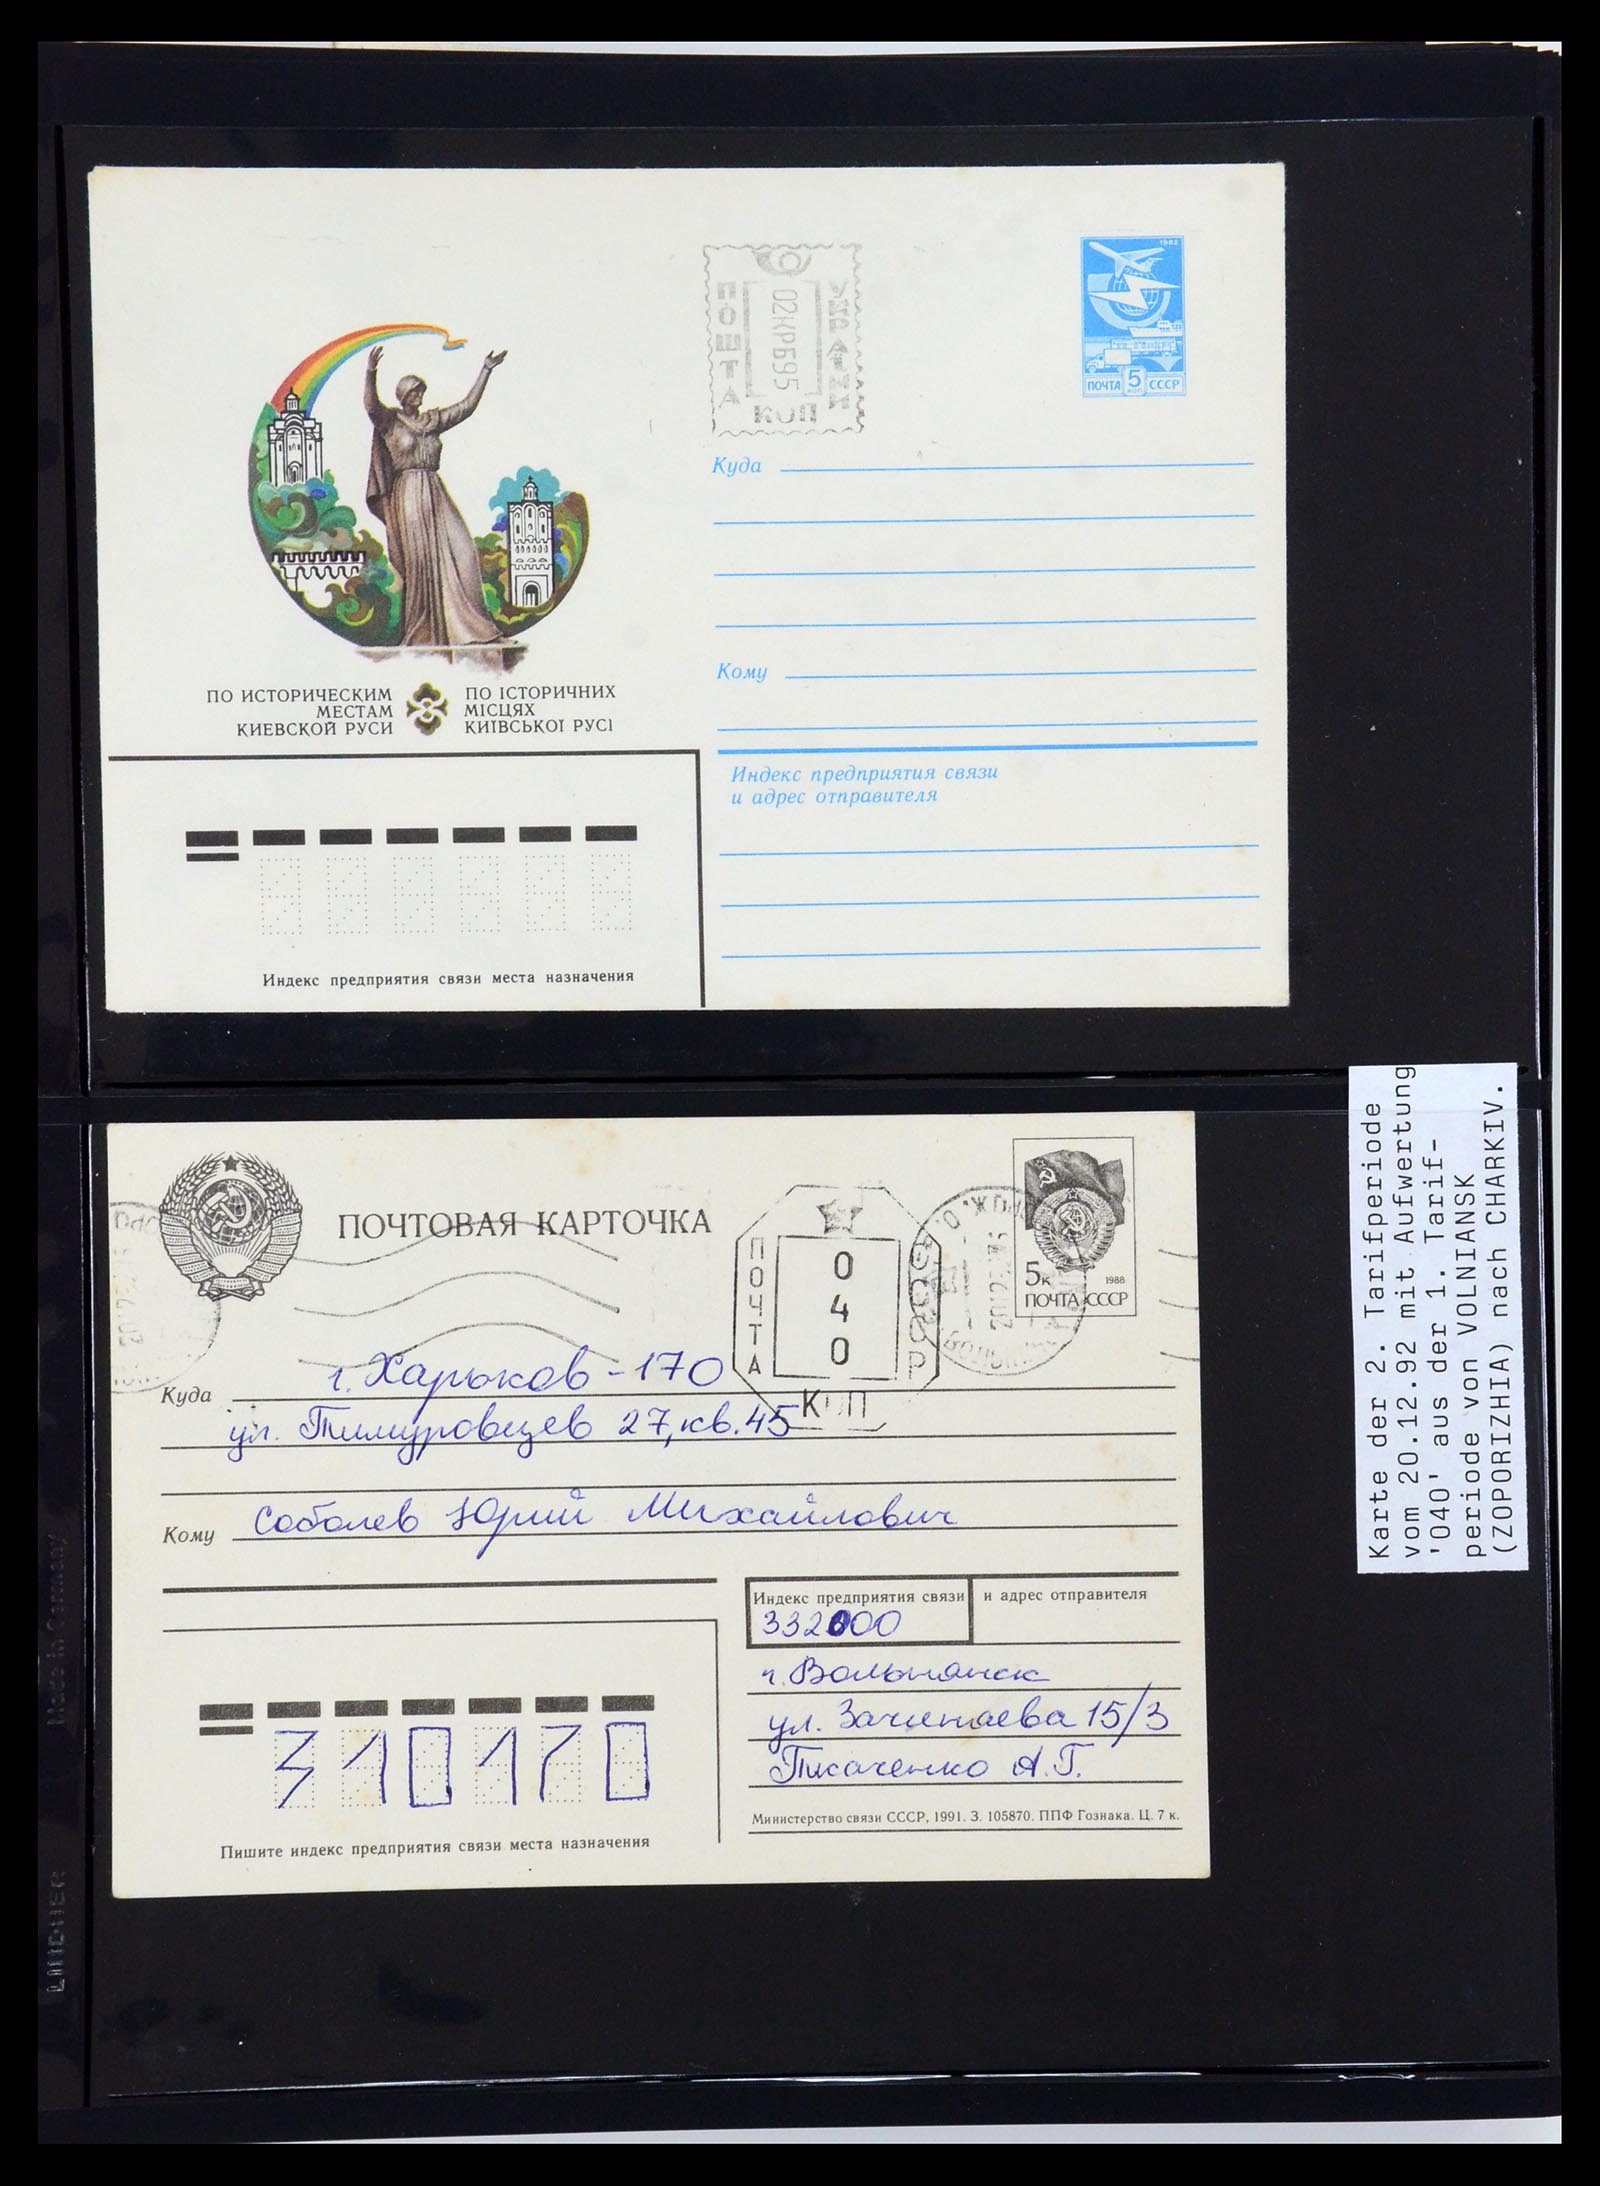 1982
ПОЧТА 5 КОП СССР
ПОШТА
02КРБ95
КОП
Куда
Кому
ПО ИСТОРИЧЕСКИМ
МЕСТАМ
КИЕВСКОЙ РУСИ
ПО ІСТОРИЧНИХ
МІСЦЯХ
КИЇВСЬКОЇ РУСІ
Индекс предприятия связи
и адрес отправителя
Индекс предприятия связи места назначения
ПОЧТОВАЯ КАРТОЧКА
ПОЧТА
040
СССР
КОП
5к
1988
ПОЧТА СССР
Куда г. Харьков-170
ул. Тимуровцев 27, кв. 45
Кому Соболев Юрий Михайлович
Индекс предприятия связи и адрес отправителя
332000
г. Вольнянск
ул. Зачиняева 15/3
Ткаченко А.Г.
Министерство связи СССР, 1991. З. 105870. ППФ Гознака. Ц. 7 к.
310170
Пишите индекс предприятия связи места назначения
Karte der 2. Tarifperiode
vom 20.12.92 mit Aufwertung
'040' aus der 1. Tarif-
periode von VOLNIANSK
(ZOPORIZHIA) nach CHARKIV.
Made in Germany
LINDNER